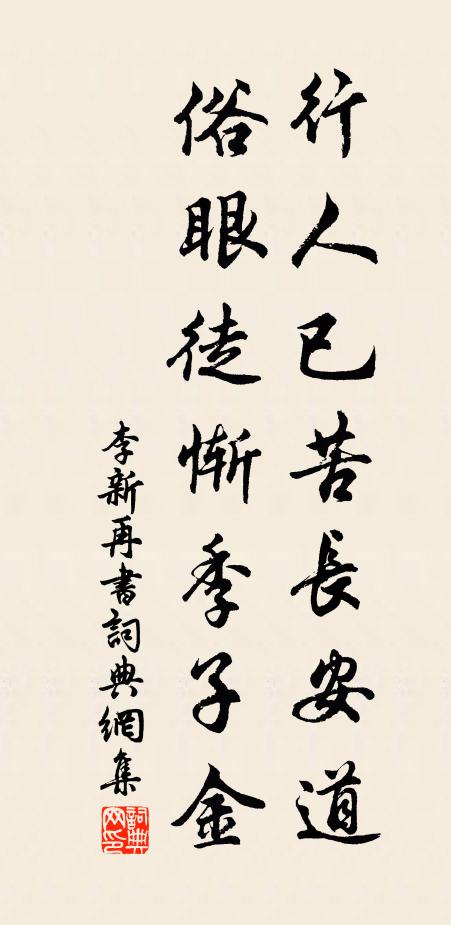 行人已苦長安道
俗眼徒慚季子金
李新再書詞典網集
詞典网印